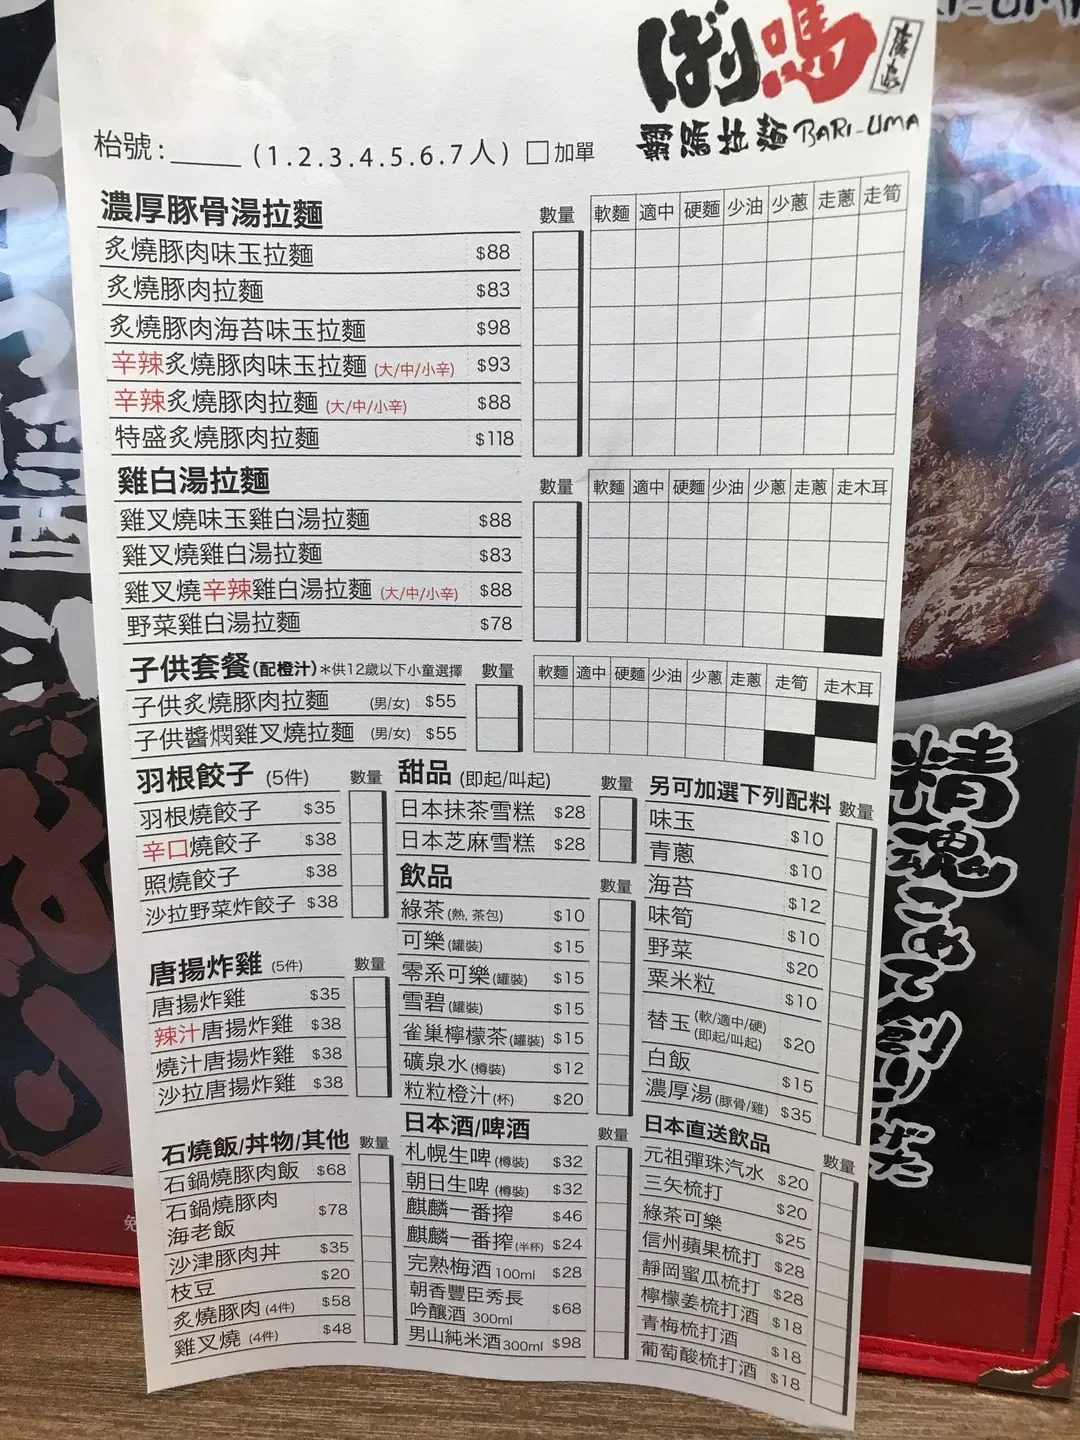 ばり嗎
霸嗎拉麵 BARI-UMA
枱號:_____ (1.2.3.4.5.6.7人) □加單
濃厚豚骨湯拉麵 數量 軟麵 適中 硬麵 少油 少蔥 走蔥 走筍
炙燒豚肉味玉拉麵 $88
炙燒豚肉拉麵 $83
炙燒豚肉海苔味玉拉麵 $98
辛辣炙燒豚肉味玉拉麵 (大/中/小辛) $93
辛辣炙燒豚肉拉麵 (大/中/小辛) $88
特盛炙燒豚肉拉麵 $118
雞白湯拉麵 數量 軟麵 適中 硬麵 少油 少蔥 走蔥 走木耳
雞叉燒味玉雞白湯拉麵 $88
雞叉燒雞白湯拉麵 $83
雞叉燒辛辣雞白湯拉麵 (大/中/小辛) $88
野菜雞白湯拉麵 $78
子供套餐(配橙汁)*供12歲以下小童選擇 數量 軟麵 適中 硬麵 少油 少蔥 走蔥 走筍 走木耳
子供炙燒豚肉拉麵 (男/女) $55
子供醬燜雞叉燒拉麵 (男/女) $55
羽根餃子 (5件) 數量
羽根燒餃子 $35
辛口燒餃子 $38
照燒餃子 $38
沙拉野菜炸餃子 $38
唐揚炸雞 (5件) 數量
唐揚炸雞 $35
辣汁唐揚炸雞 $38
燒汁唐揚炸雞 $38
沙拉唐揚炸雞 $38
石燒飯/丼物/其他 數量
石鍋燒豚肉飯 $68
石鍋燒豚肉
海老飯 $78
沙津豚肉丼 $35
枝豆 $20
炙燒豚肉 (4件) $58
雞叉燒 (4件) $48
甜品 (即起/叫起) 數量
日本抹茶雪糕 $28
日本芝麻雪糕 $28
飲品 數量
綠茶(熱, 茶包) $10
可樂(罐裝) $15
零系可樂(罐裝) $15
雪碧(罐裝) $15
雀巢檸檬茶(罐裝) $15
礦泉水(樽裝) $12
粒粒橙汁(杯) $20
日本酒/啤酒 數量
札幌生啤(樽裝) $32
朝日生啤(樽裝) $32
麒麟一番搾 $46
麒麟一番搾(半杯) $24
完熟梅酒100ml $28
朝香豐臣秀長
吟釀酒 300ml $68
男山純米酒300ml $98
另可加選下列配料 數量
味玉 $10
青蔥 $10
海苔 $12
味筍 $10
野菜 $20
粟米粒 $10
替玉(軟/適中/硬)
(即起/叫起) $20
白飯 $15
濃厚湯(豚骨/雞) $35
日本直送飲品 數量
元祖彈珠汽水 $20
三矢梳打 $20
綠茶可樂 $25
信州蘋果梳打 $28
靜岡蜜瓜梳打 $28
檸檬姜梳打酒 $18
青梅梳打酒 $18
葡萄酸梳打酒 $18
精魂こめて創り笑